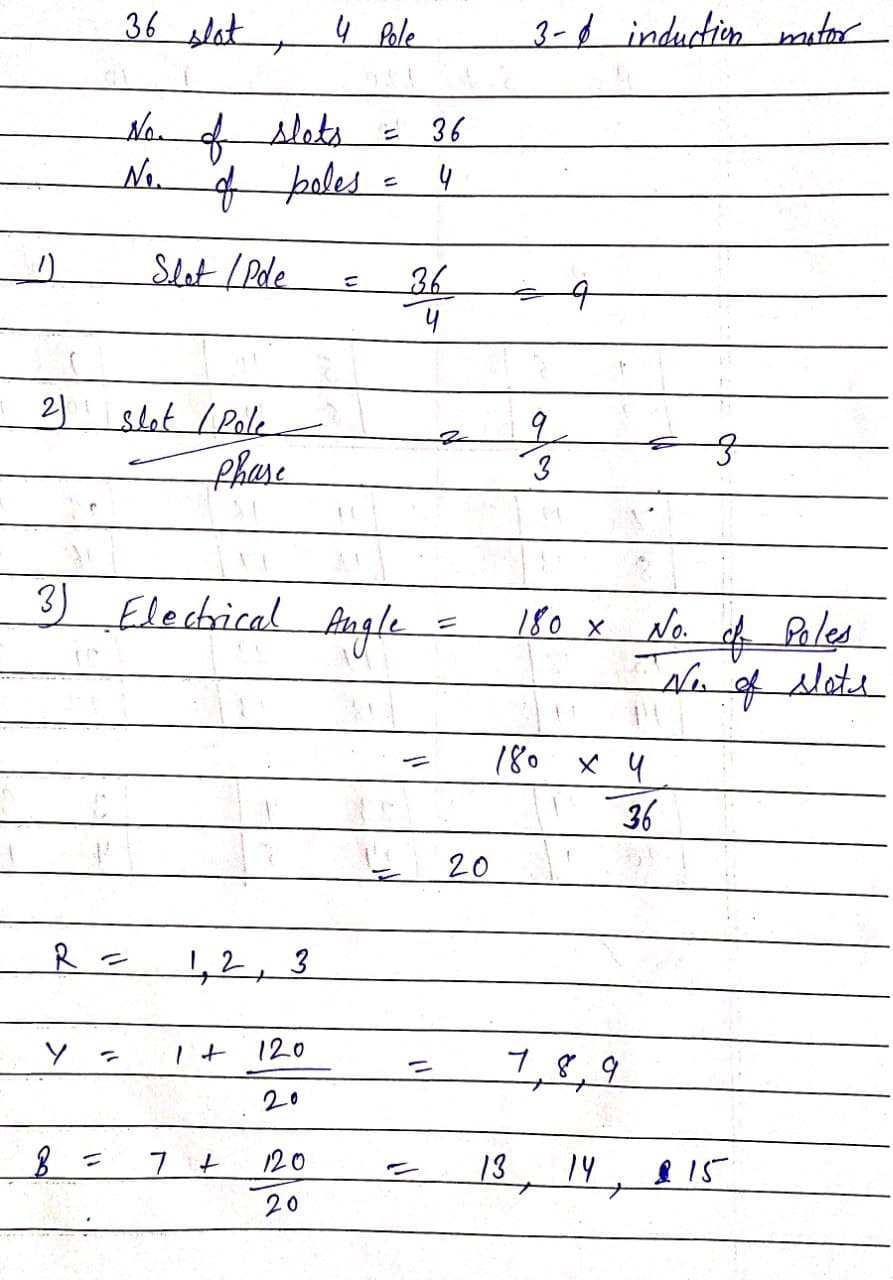 36 slot, 4 Pole 3-ϕ induction motor
No. of slots = 36
No. of poles = 4
1) Slot / Pole = 36/4 = 9
2) Slot / Pole / Phase = 9/3 = 3
3) Electrical Angle = 180 x No. of Poles / No. of slots
= 180 x 4/36
= 20
R = 1, 2, 3
Y = 1 + 120/20 = 7, 8, 9
B = 7 + 120/20 = 13, 14, 15